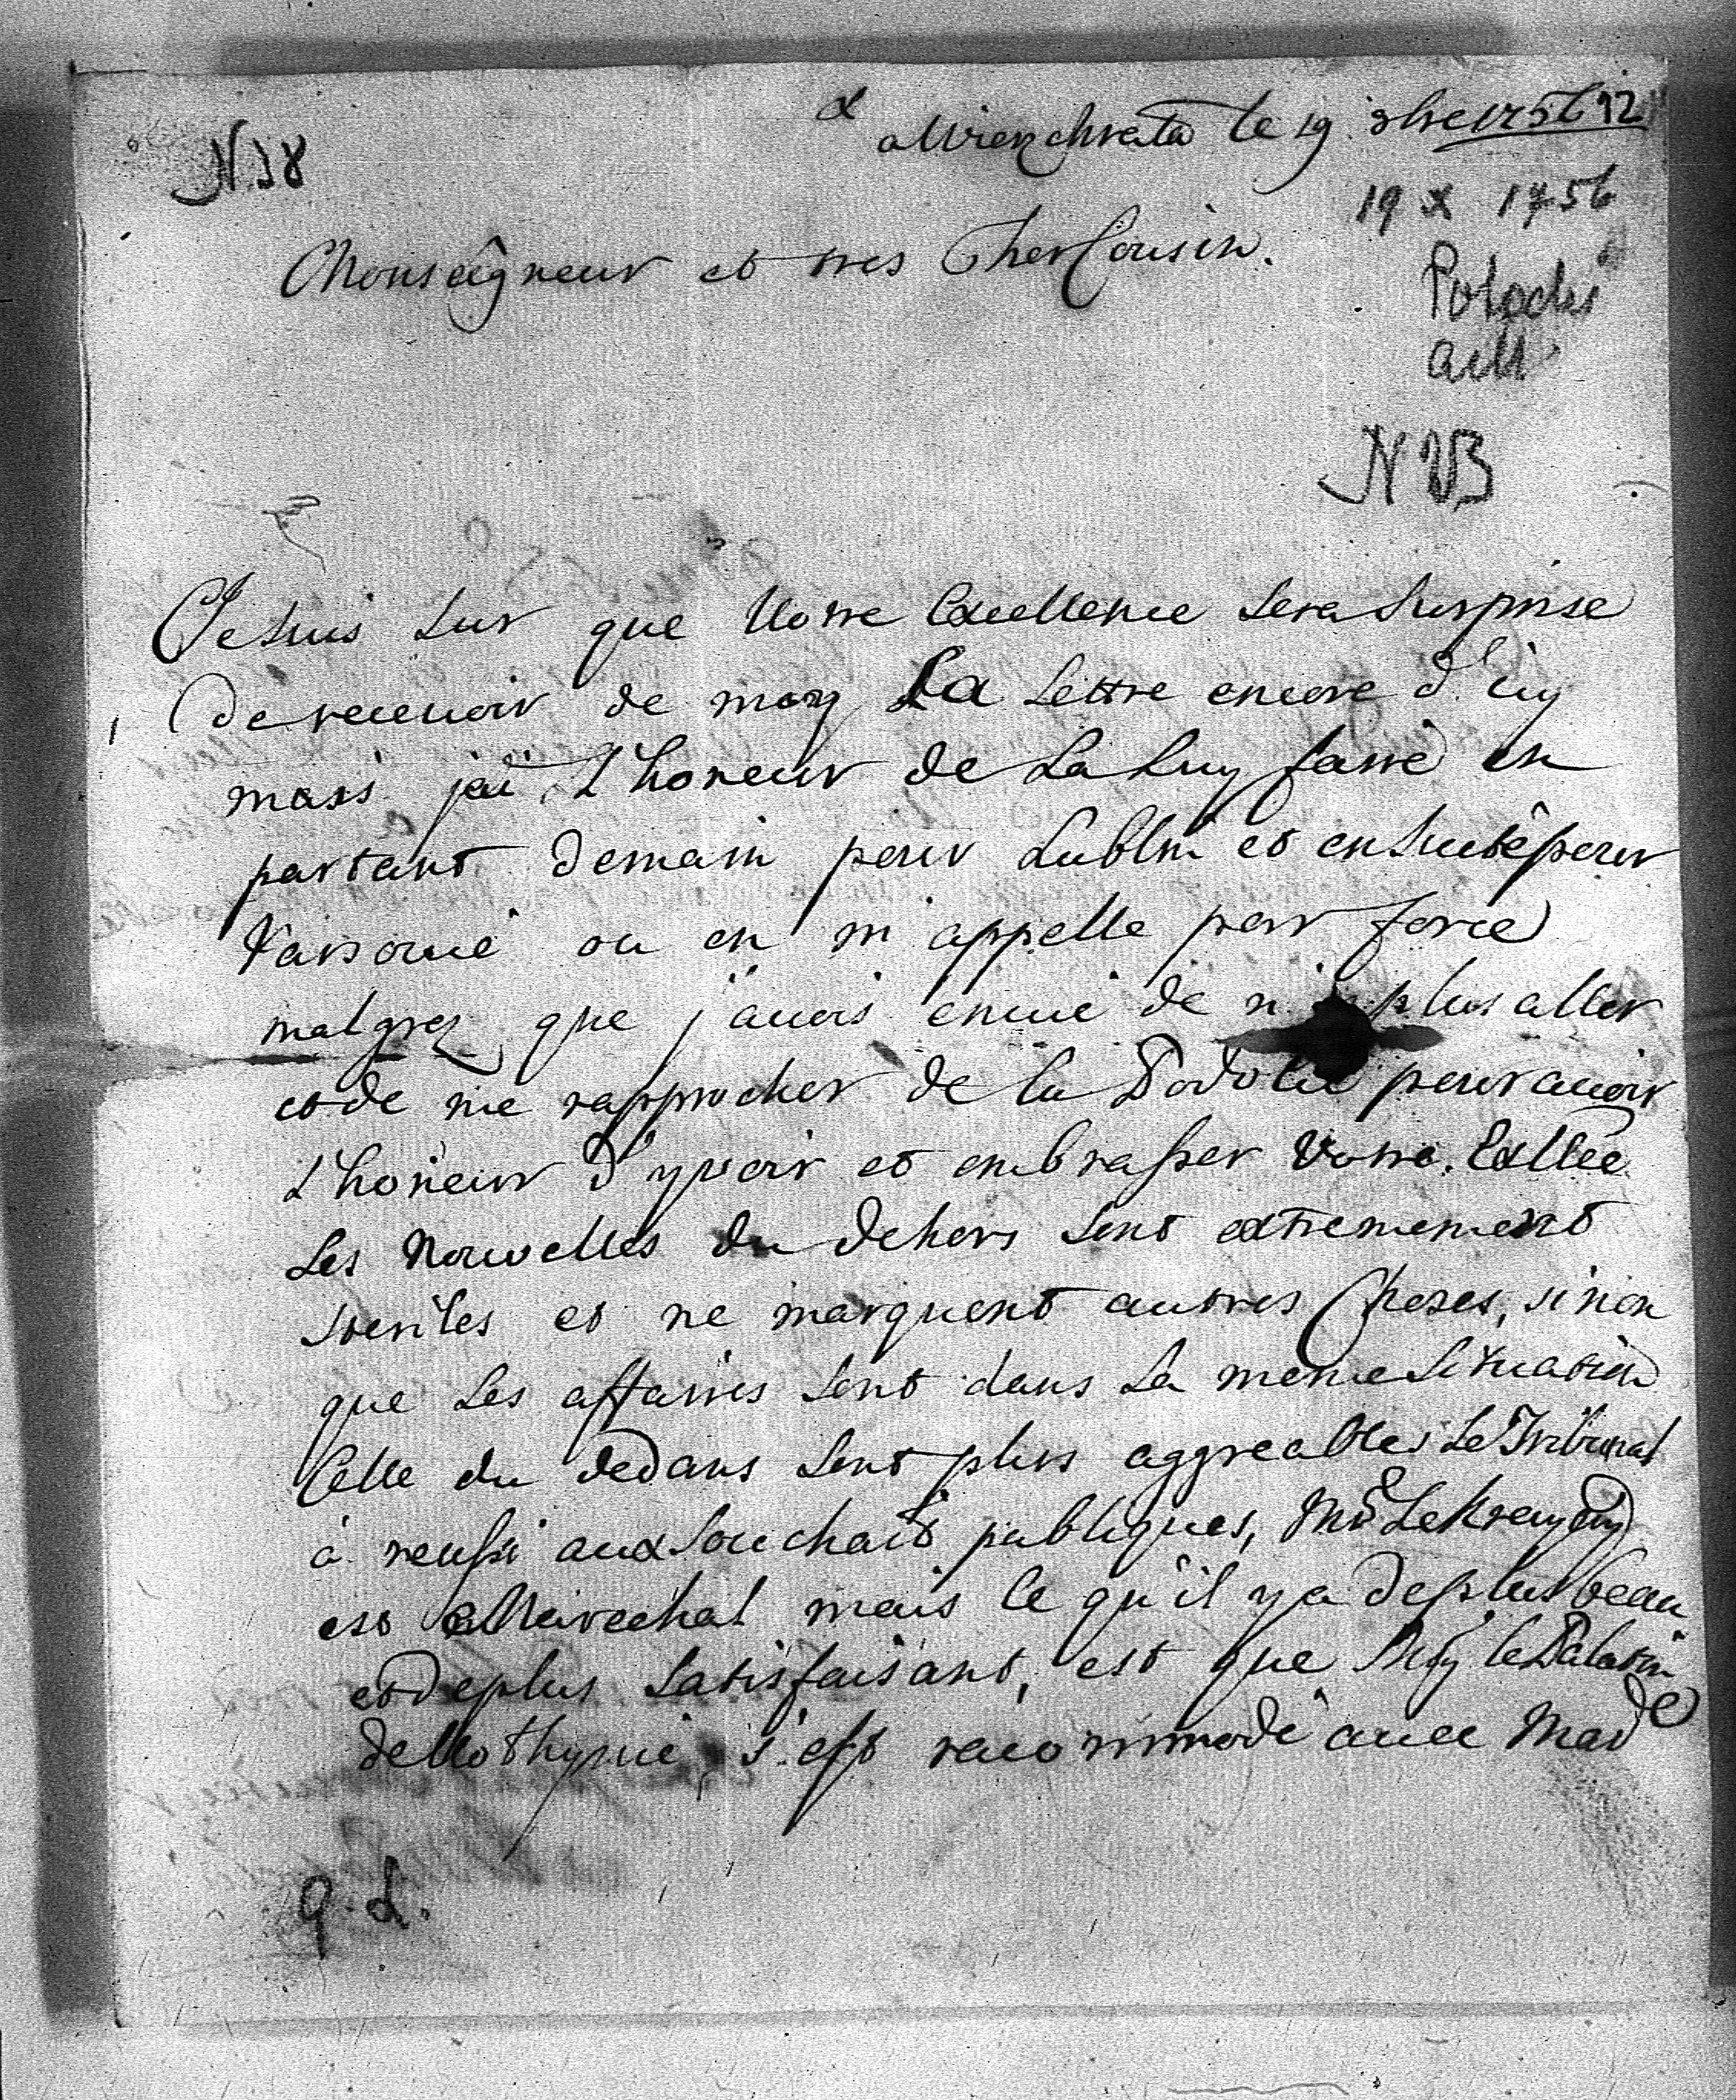 a Wierzchrata le 19 8bre 1756 12
N. 18
19 X 1756
Monseigneur et tres Cher Cousin.
Potocki
N VB
Je suis sur que Votre Excellence sera surprise
de recevoir de moy la lettre encore d'icy
mais j'ai l'honeur de la luy faire en
partant demain pour Lublin et ensuite pour
Varsovie ou on m'appelle par force
malgrez que j'avois envie de n' plus aller
et de me rapprocher de la Podolie pour avoir
l'honeur d'y voir et embrasser Votre Exllce
Les Nouvelles du dehors sont extremement
steriles et ne marquent autres choses, sinon
que les affaires sont dans la meme situation
Celle du dedans sont plus aggreables le Tribunal
à reussi aux souchait publiques, Mr le
est Marechal mais ce qu'il y a de plus beau
et de plus satisfaisant, est que Mr le Palatin
de Volhynie s'est racommodé avec Mad
de
G. L.